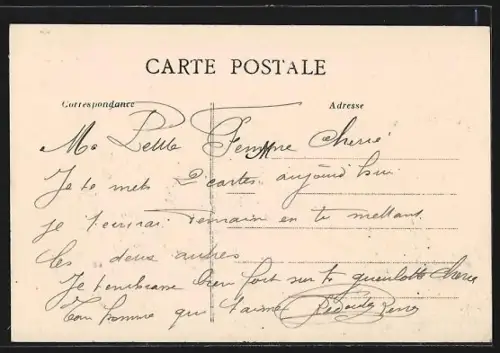 CARTE POSTALE
Correspondance
Adresse
Ma Petite Femme Cherie
Je te mets 2 cartes aujourd hui
je t'ecrirai Demain en te mettant
les deux autres
Je t'embrasse bien fort sur ta gueulette cherie
Ton homme qui t'aime